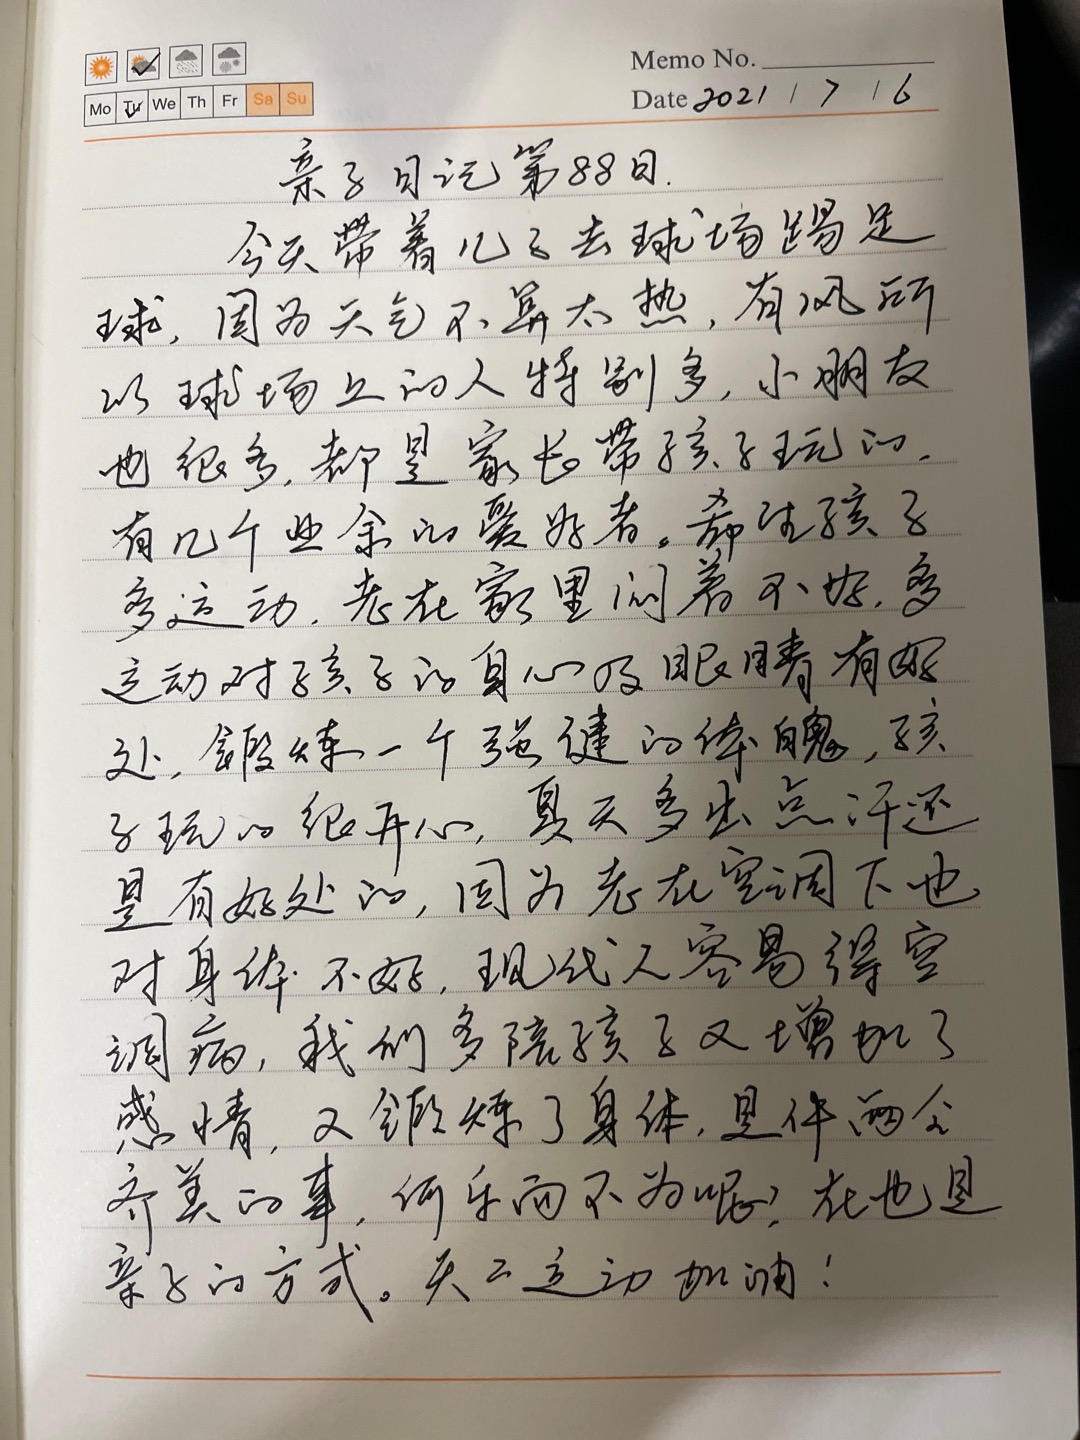 Memo No.
Mo Tu We Th Fr Sa Su
Date 2021 / 7 / 6
亲子日记第88日.
今天带着儿子去球场踢足
球,因为天气不算太热,有风所
以球场上的人特别多,小朋友
也很多,都是家长带孩子玩的,
有几个业余的爱好者。希望孩子
多运动,老在家里闷着不好,多
运动对孩子的身心及眼睛有好
处,锻炼一个强健的体魄,孩
子玩的很开心,夏天多出点汗还
是有好处的,因为老在空调下也
对身体不好,现代人容易得空
调病,我们多陪孩子又增加了
感情,又锻炼了身体,是件两全
齐美的事,何乐而不为呢?在也是
亲子的方式。天天运动加油!